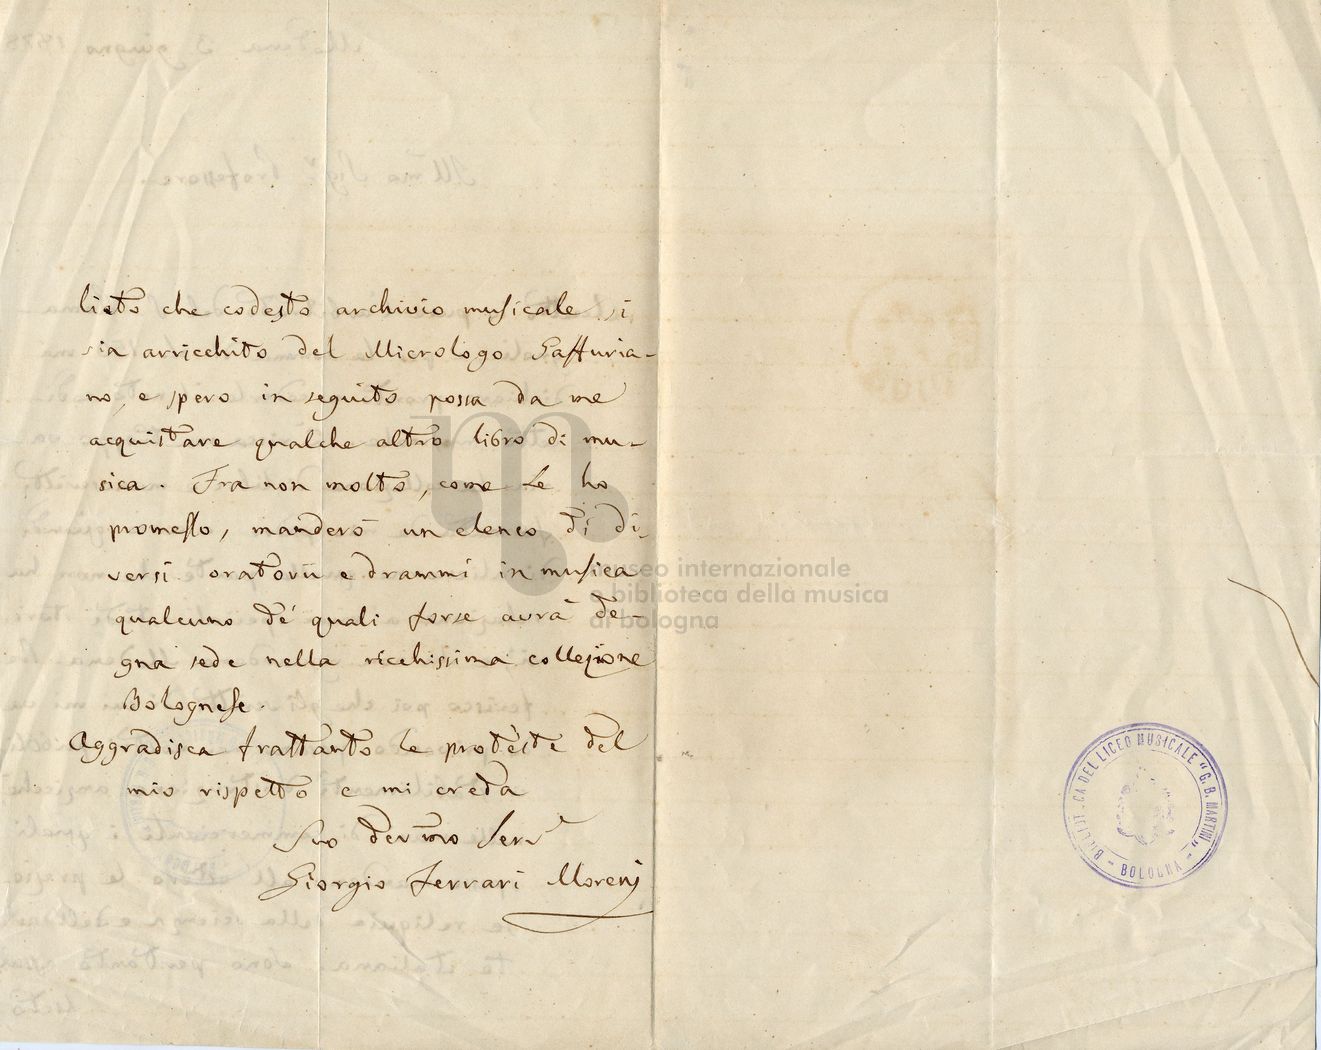 lieto che codesto archivio musicale si
sia arricchito del Micrologo Gaffuria-
no, e spero in seguito possa da me
acquistare qualche altro libro di mu-
sica. Fra non molto, come Le ho
promesso, manderò un elenco di di-
versi oratorii e drammi in musica
qualcuno de' quali forse avrà de-
gna sede nella ricchissima collezione
Bolognese.
Aggradisca frattanto le proteste del
mio rispetto e mi creda
Suo devmo Serve
Giorgio Ferrari Moreni
museo internazionale
e biblioteca della musica
di bologna
CA DEL LICEO MUSICALE "G. B. MARTINI" - BOLOGNA -